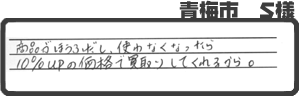 青梅市 S様
商品がほうふだし、使わなくなったら
10%UPの価格で買取りしてくれるから。